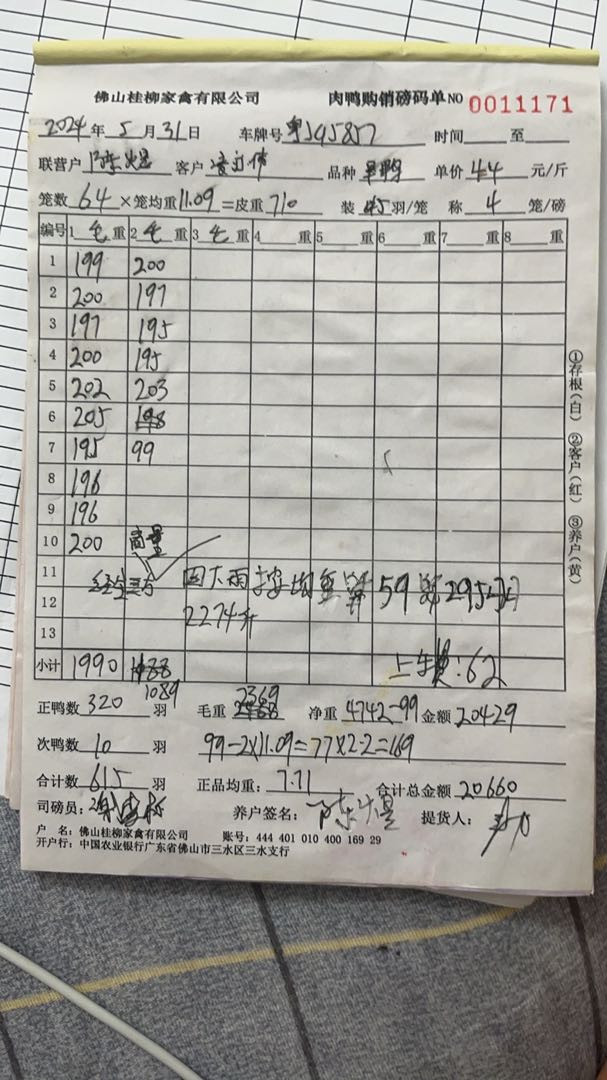 佛山桂柳家禽有限公司 肉鸭购销磅码单 NO 0011171
2024年 5月31日 车牌号 粤J95857 时间 至
联营户 客户 品种 单价 4.4 元/斤
笼数 64 ×笼均重 11.09 =皮重 710 装 羽/笼 称 4 笼/磅
编号 1 毛重 2 毛重 3 毛重 4 重 5 重 6 重 7 重 8 重
1 199 200
2 200 197
3 197 195
4 200 195
5 202 203
6 205 198
7 195 99
8 196
9 196
10 200 商量
11 因大雨 均重算 59 算 295
12 2274斤
13
小计 1990 上车费:62
1089 2369
正鸭数 320 羽 毛重 净重 4742-99 金额 20429
次鸭数 10 羽 99-2×11.09=77×2.2=169
合计数 615 羽 正品均重: 7.71 合计总金额 20660
司磅员: 养户签名: 提货人:
户 名: 佛山桂柳家禽有限公司 账号: 444 401 010 400 169 29
开户行: 中国农业银行广东省佛山市三水区三水支行
①存根(白) ②客户(红) ③养户(黄)